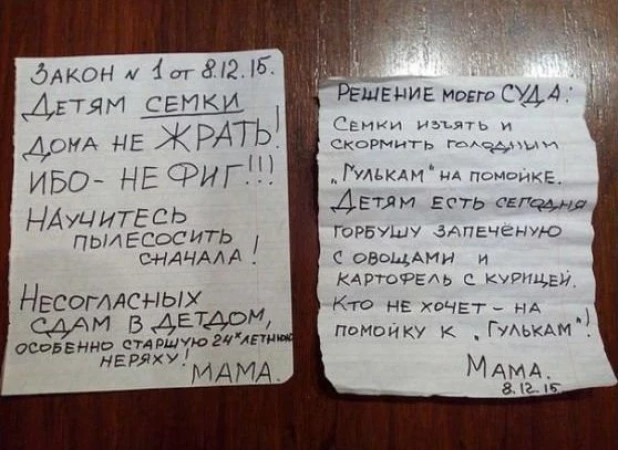 ЗАКОН № 1 от 8.12.15.
ДЕТЯМ СЕМКИ
ДОМА НЕ ЖРАТЬ!
ИБО - НЕ ФИГ!!!
НАУЧИТЕСЬ
ПЫЛЕСОСИТЬ
СНАЧАЛА!
НЕСОГЛАСНЫХ
СДАМ В ДЕТДОМ,
ОСОБЕННО СТАРШУЮ 24х ЛЕТНЮЮ
НЕРЯХУ!
МАМА.
РЕШЕНИЕ МОЕГО СУДА:
СЕМКИ ИЗЪЯТЬ И
СКОРМИТЬ ГОЛОДНЫМ
„ГУЛЬКАМ" НА ПОМОЙКЕ.
ДЕТЯМ ЕСТЬ СЕГОДНЯ
ГОРБУШУ ЗАПЕЧЁНУЮ
С ОВОЩАМИ И
КАРТОФЕЛЬ С КУРИЦЕЙ.
КТО НЕ ХОЧЕТ - НА
ПОМОЙКУ К „ГУЛЬКАМ"!
МАМА.
8.12.15.